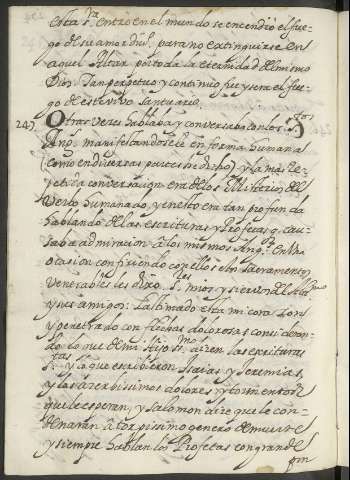 esta S.ra entro en el mundo se encendió el fue-
go de su amor diu.º para no extinguirse en
aquel Altar por toda la eternidad del mismo
Dios. Tan perpetuo y continuo fue siempre el fue-
go de este vivo Santuario.
247 Otras veces hablaba y conversaba con los S.tos
Ang.s manifestandosele en forma humana
(como en diversas partes he dicho) y la mas re-
petida conversacion era de los Misterios del
Verbo humanado, y en esto era tan profunda
hablando de las escrituras y Profetas q. cau-
saba admiracion a los mismos Ang.s En una
ocasion confiriendo con ellos estos sacramentos
venerables les dixo. S.res mios y siervos del Altissimo
y sus amigos: lastimado esta mi corazon
y penetrado con flechas dolorosas consideran-
do lo que de mi Hijo S.mo dizen las escrituras
S.tas y la que escribieron Isaias y Jeremias,
y los acerbissimos dolores y tormentos
que le esperan, y Salomon dize que le con-
denaran a torpissimo genero de muerte
y siempre hablan los Profetas con grandes